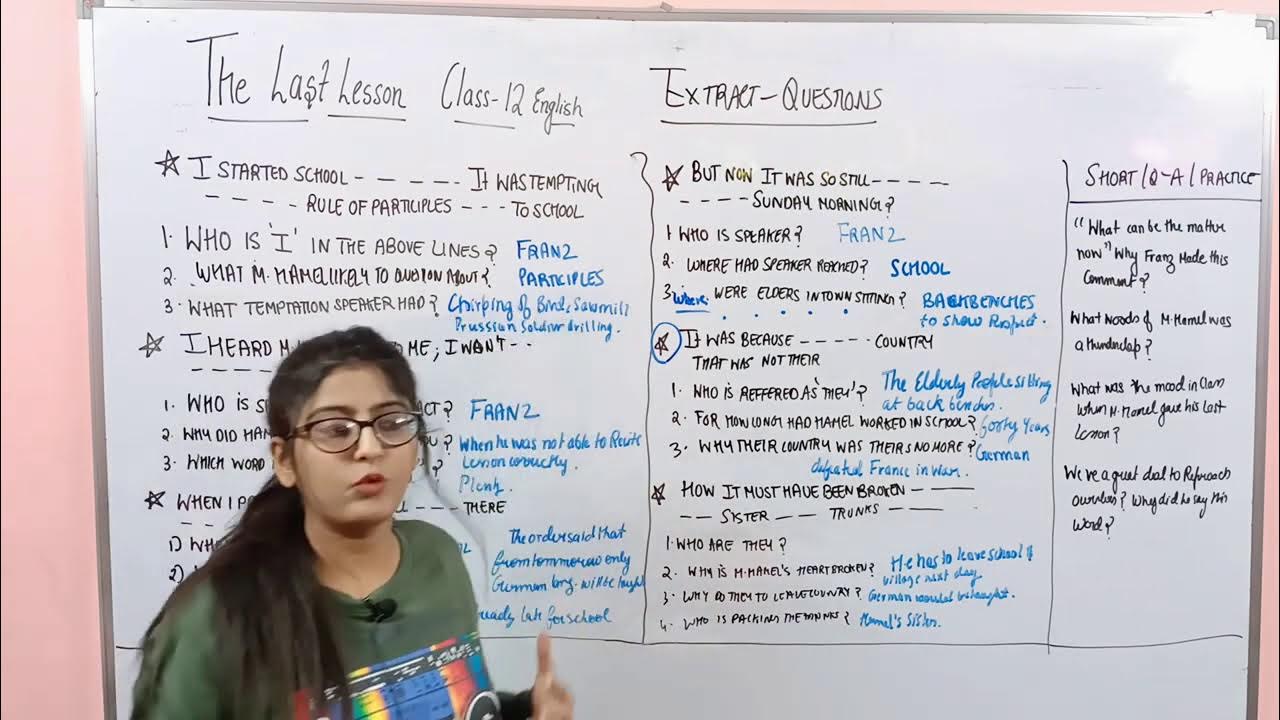 The Last Lesson Class-12 English
☆ I STARTED SCHOOL - - - - - - IT WAS TEMPTING
- - - - - RULE OF PARTICIPLES - - - TO SCHOOL
1. WHO IS 'I' IN THE ABOVE LINES? FRANZ
2. WHAT M. HAMEL LIKELY TO QUESTION ABOUT? PARTICIPLES
3. WHAT TEMPTATION SPEAKER HAD? Chirping of Birds, Sawmill
Prussian Soldier drilling.
☆ I HEARD M. ME; I WON'T - -
1. WHO IS ? FRANZ
2. WHY DID HAM ? When he was not able to Recite
Lesson correctly.
3. WHICH WORD ?
Plenty.
☆ WHEN I P THERE
1) WHE
The order said that
from tommorow only
2)
German lang. will be taught
ready late for school
EXTRACT - QUESTIONS
☆ BUT NOW IT WAS SO STILL - - - -
- - - - SUNDAY MORNING?
1 WHO IS SPEAKER? FRANZ
2. WHERE HAD SPEAKER REACHED? SCHOOL
3. Where WERE ELDERS IN TOWN SITTING? BACKBENCHES
to show Respect.
☆ IT WAS BECAUSE - - - - - COUNTRY
THAT WAS NOT THEIR
1. WHO IS REFFERED AS 'THEY'? The Elderly People sitting
at back benches.
2. FOR HOW LONG HAD HAMEL WORKED IN SCHOOL? forty Years
3. WHY THEIR COUNTRY WAS THEIRS NO MORE? German
defeated France in war.
☆ HOW IT MUST HAVE BEEN BROKEN - - -
- - SISTER - - TRUNKS - - -
1. WHO ARE THEY?
2. WHY IS M. HAMEL'S HEART BROKEN? He has to leave school &
village next day
3. WHY DO THEY TO LEAVE COUNTRY? German would be taught.
4. WHO IS PACKING THE TRUNKS? Hamel's Sister.
SHORT / Q-A / PRACTICE
"What can be the matter
now" Why Franz Made this
Comment?
What words of M. Hamel was
a thunderclap?
What was the mood in Class
when M. Hamel gave his last
lesson?
We've a great deal to Reproach
ourselves? Why did he say this
word?